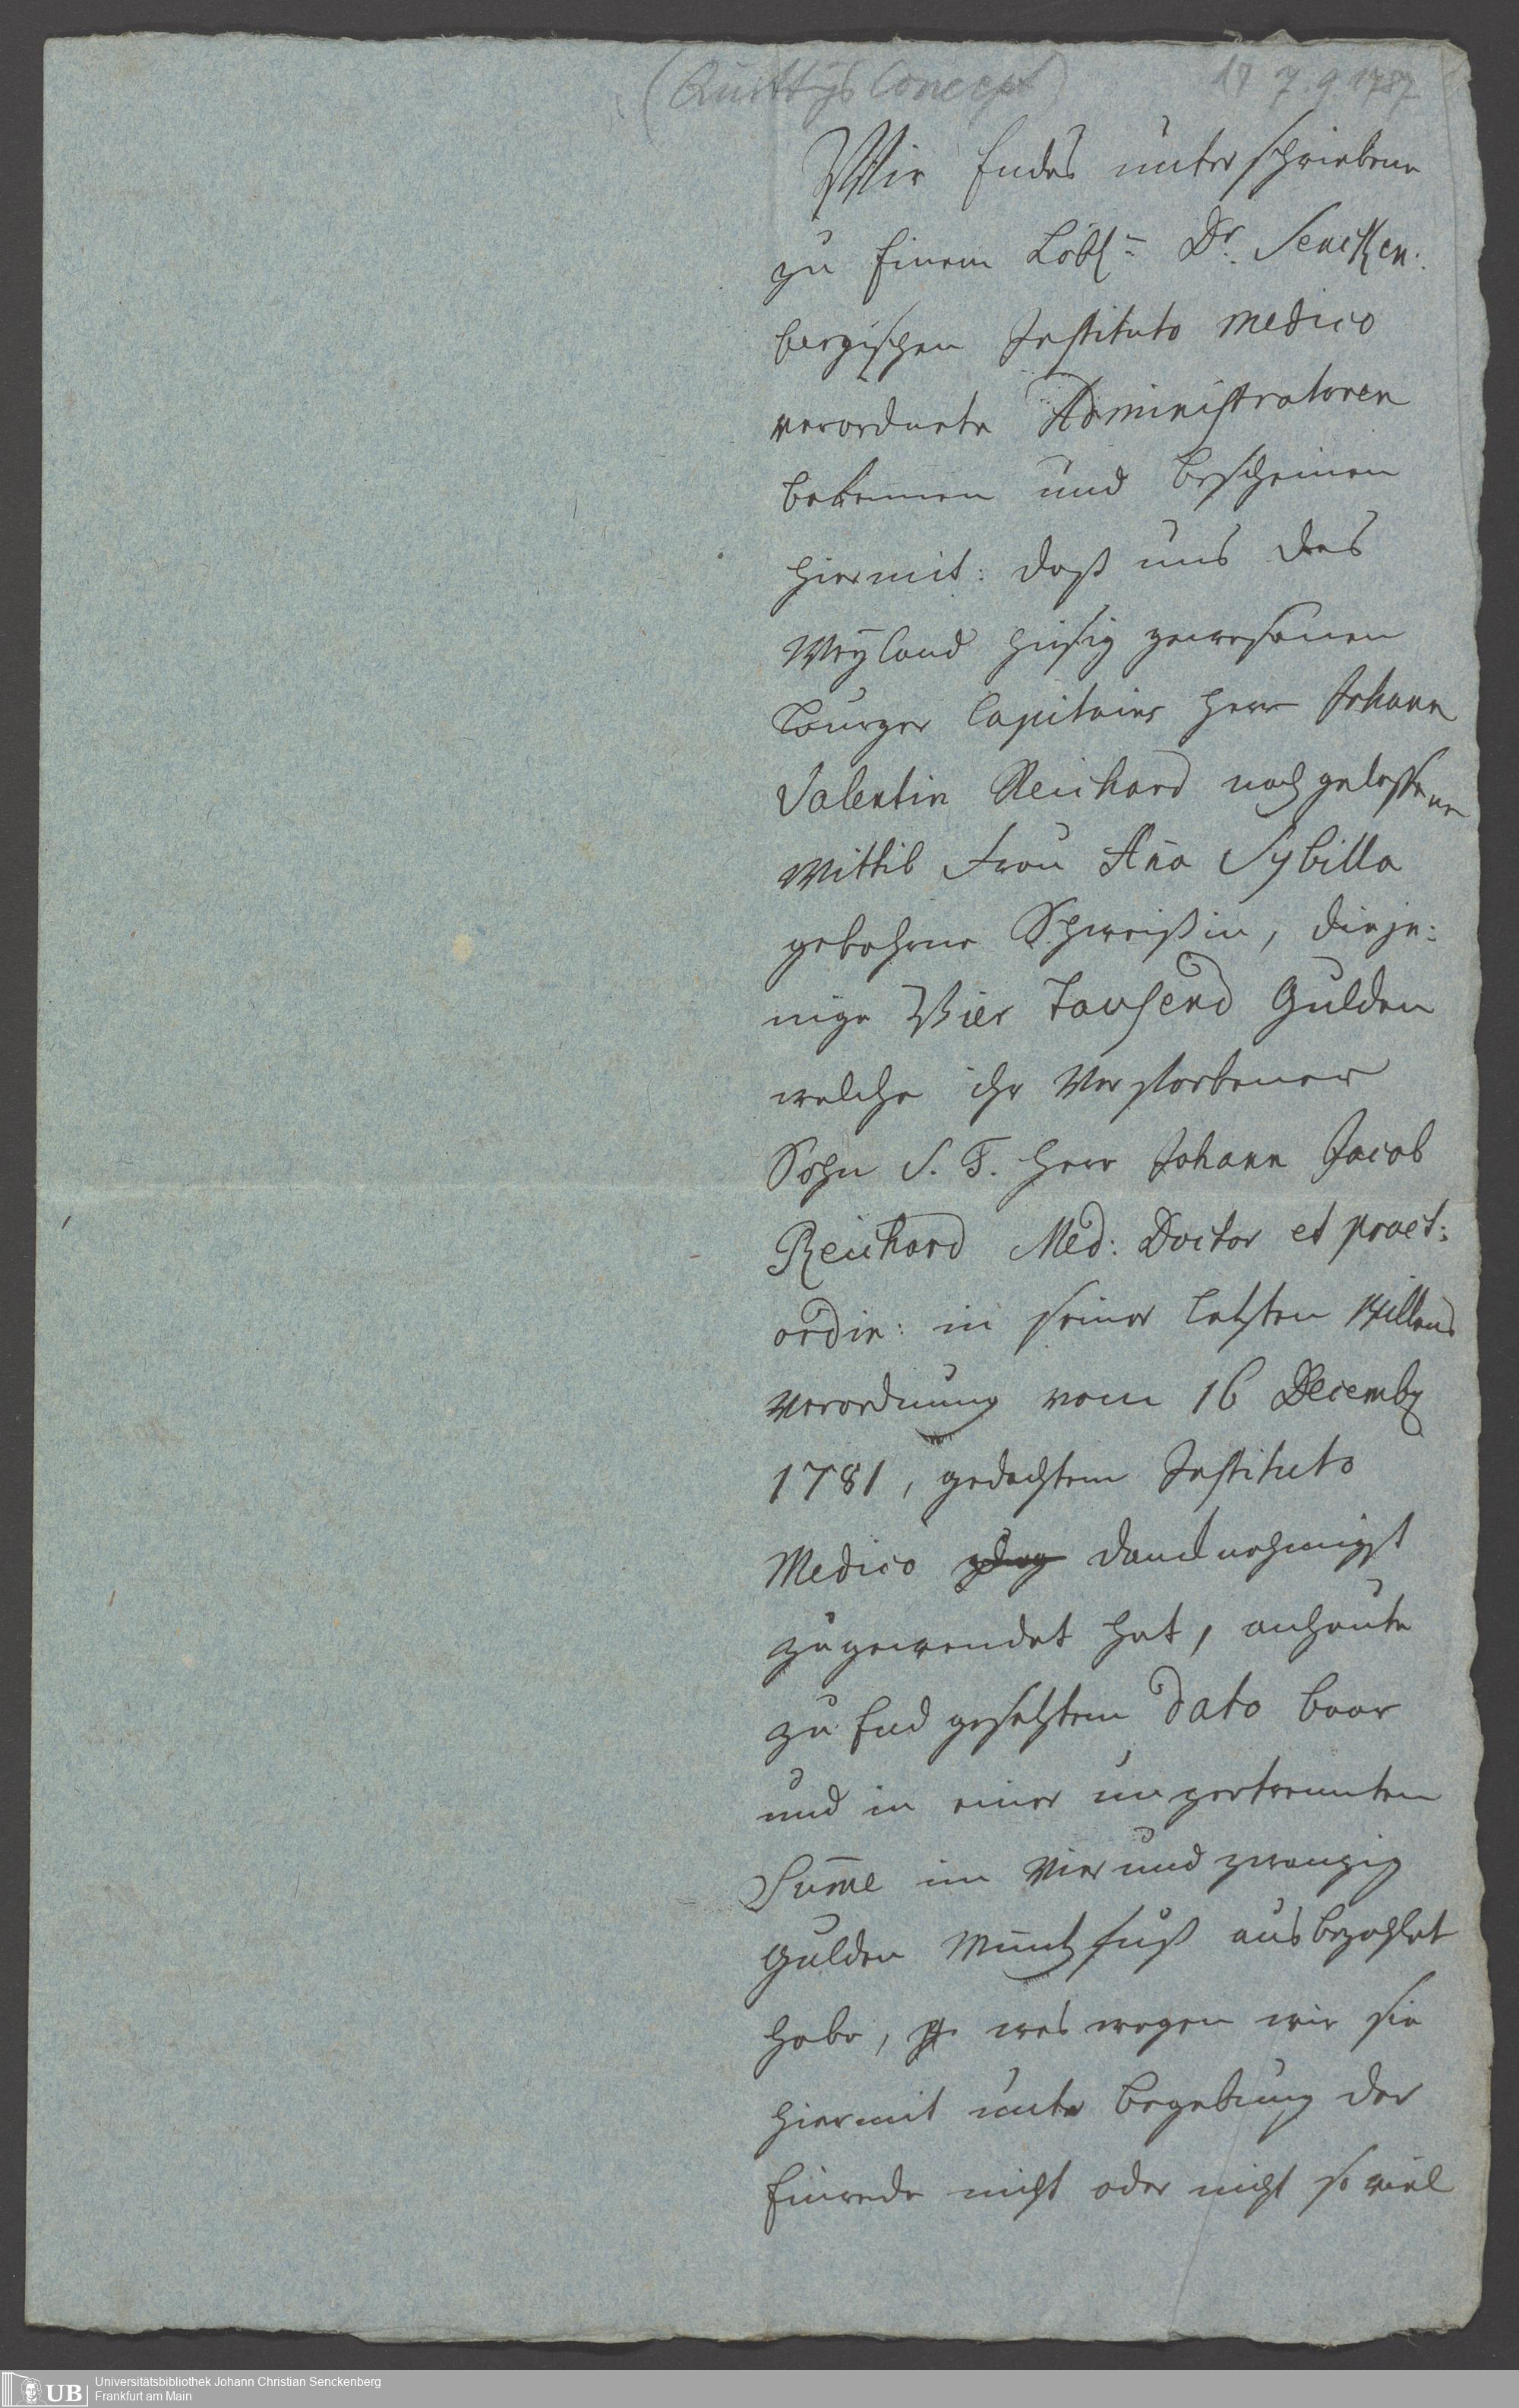 (Quittgs Concept) 17 7.9.1787
Wir Endes unterschriebene
zu Einem Löbl: Dr. Sencken:
bergischen Instituto medico
verordnete Administratoren
bekennen und bescheinen
hiermit: daß uns des
Weyland hiesig gewesenen
Bürger Capitains Herr Johann
Valentin Reichard nachgelassene
Wittib Frau Aña Sybilla
gebohrne Schweißin, dieje:
nige Vier tausend Gulden
welche ihr Verstorbener
Sohn S. T. Herr Johann Jacob
Reichard Med: Doctor et pract:
ordin: in seiner letzten Willens
Verordnung vom 16 Decembr
1781, gedachtem Instituto
Medico dancknehmigst
zugewendet hat, anheute
zu End gesetztem dato baar
und in einer unzertrennten
Sum̄e im Vier und zwanzig
Gulden Müntzfuß ausbezahlet
habe, weswegen wir sie
hiermit unter Begebung der
Einrede nicht oder nicht so viel
UB Universitätsbibliothek Johann Christian Senckenberg
Frankfurt am Main